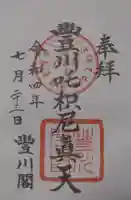 奉拝
豊川吒枳尼真天
令和四年
七月二十二日
豊川閣